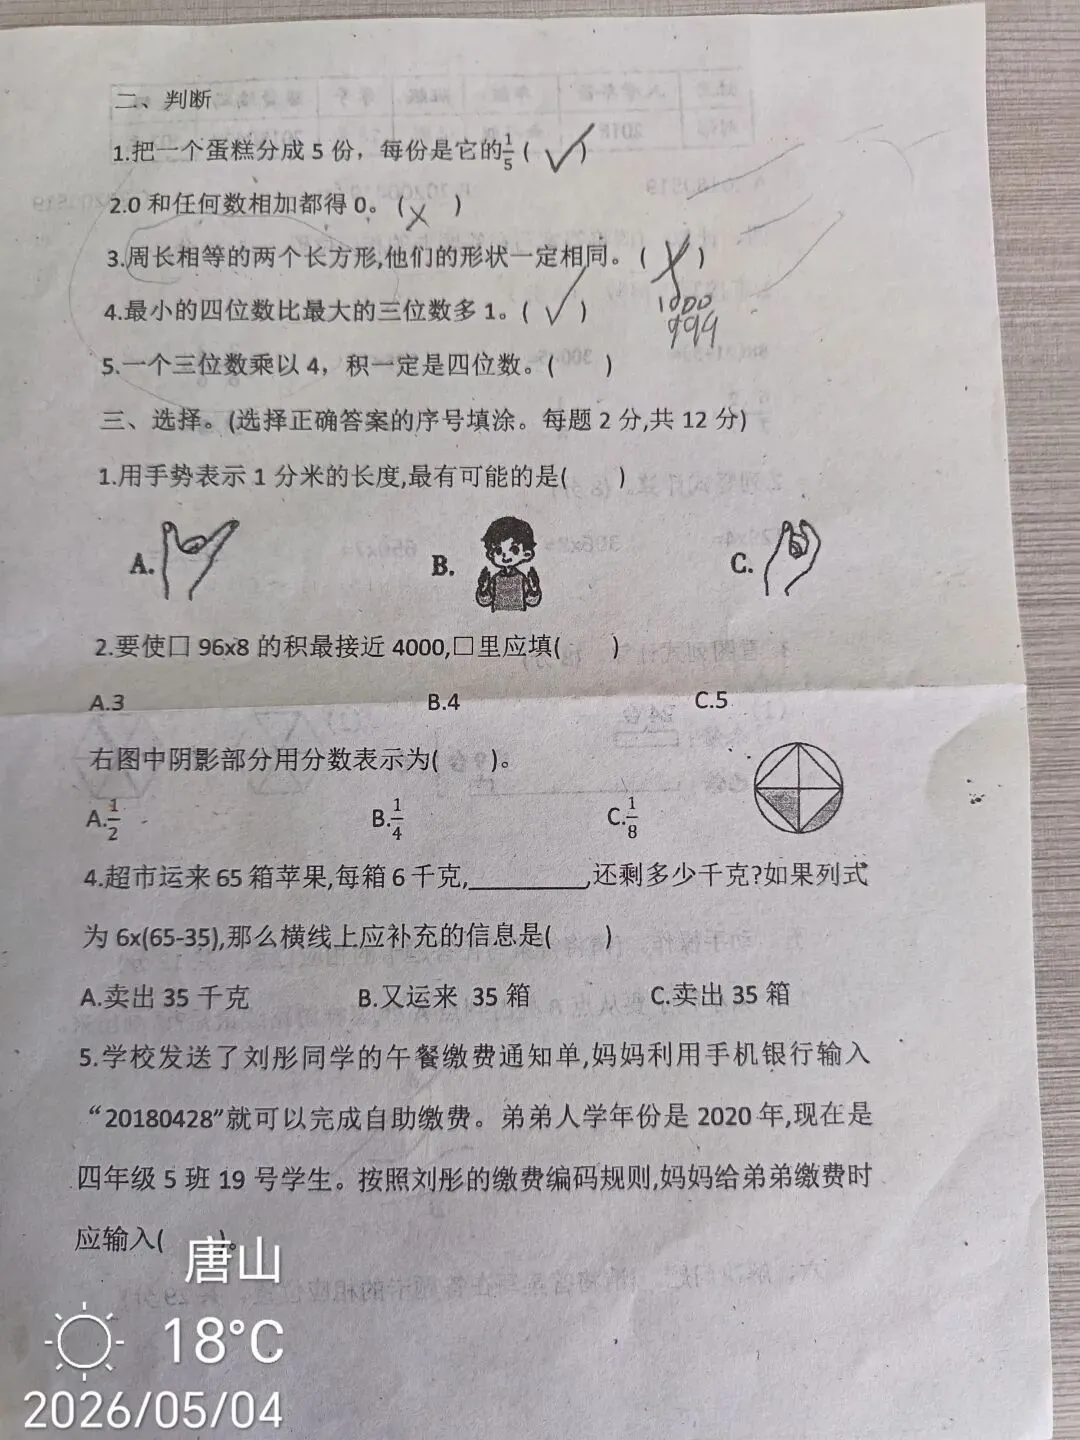 二、判断
1.把一个蛋糕分成5份，每份是它的1/5( √ )
2.0和任何数相加都得0。( × )
3.周长相等的两个长方形,他们的形状一定相同。( × )
4.最小的四位数比最大的三位数多1。( √ )
1000
999
5.一个三位数乘以4，积一定是四位数。( )
三、选择。(选择正确答案的序号填涂。每题2分,共12分)
1.用手势表示1分米的长度,最有可能的是( )
A. B. C.
2.要使□96x8的积最接近4000,□里应填( )
A.3 B.4 C.5
右图中阴影部分用分数表示为( )。
A.1/2 B.1/4 C.1/8
4.超市运来65箱苹果,每箱6千克,_________,还剩多少千克?如果列式
为6x(65-35),那么横线上应补充的信息是( )
A.卖出35千克 B.又运来 35箱 C.卖出35箱
5.学校发送了刘彤同学的午餐缴费通知单,妈妈利用手机银行输入
“20180428”就可以完成自助缴费。弟弟人学年份是2020年,现在是
四年级5班19号学生。按照刘彤的缴费编码规则,妈妈给弟弟缴费时
应输入( )。
唐山
18°C
2026/05/04